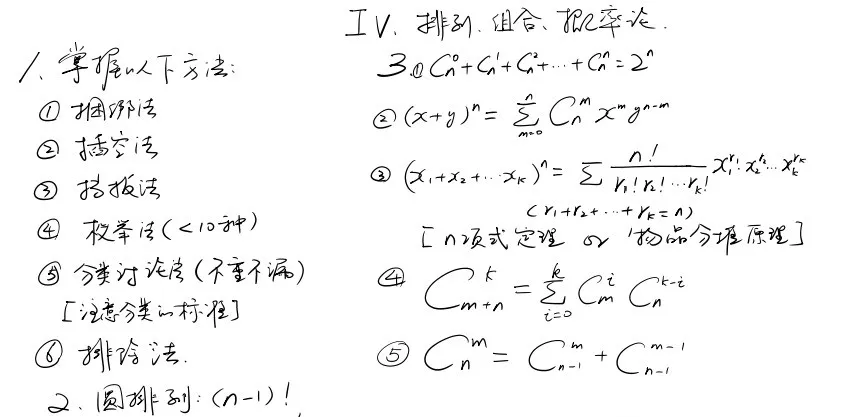 IV. 排列. 组合、概率论.
1. 掌握以下方法:
① 捆绑法
② 插空法
③ 挡板法
④ 枚举法(<10种)
⑤ 分类讨论法(不重不漏)
[注意分类的标准]
⑥ 排除法.
2. 圆排列: (n-1)!
3.① C_n^0+C_n^1+C_n^2+⋯+C_n^n=2^n
② (x+y)^n = \sum_{m=0}^{n} C_n^m x^m y^{n-m}
③ (x_1+x_2+⋯x_k)^n = \sum \frac{n!}{r_1!r_2!⋯r_k!} x_1^{r_1}·x_2^{r_2}⋯x_k^{r_k}
(r_1+r_2+⋯+r_k=n)
[n项式定理 or 物品分堆原理]
④ C_{m+n}^k = \sum_{i=0}^{k} C_m^i C_n^{k-i}
⑤ C_n^m = C_{n-1}^m + C_{n-1}^{m-1}